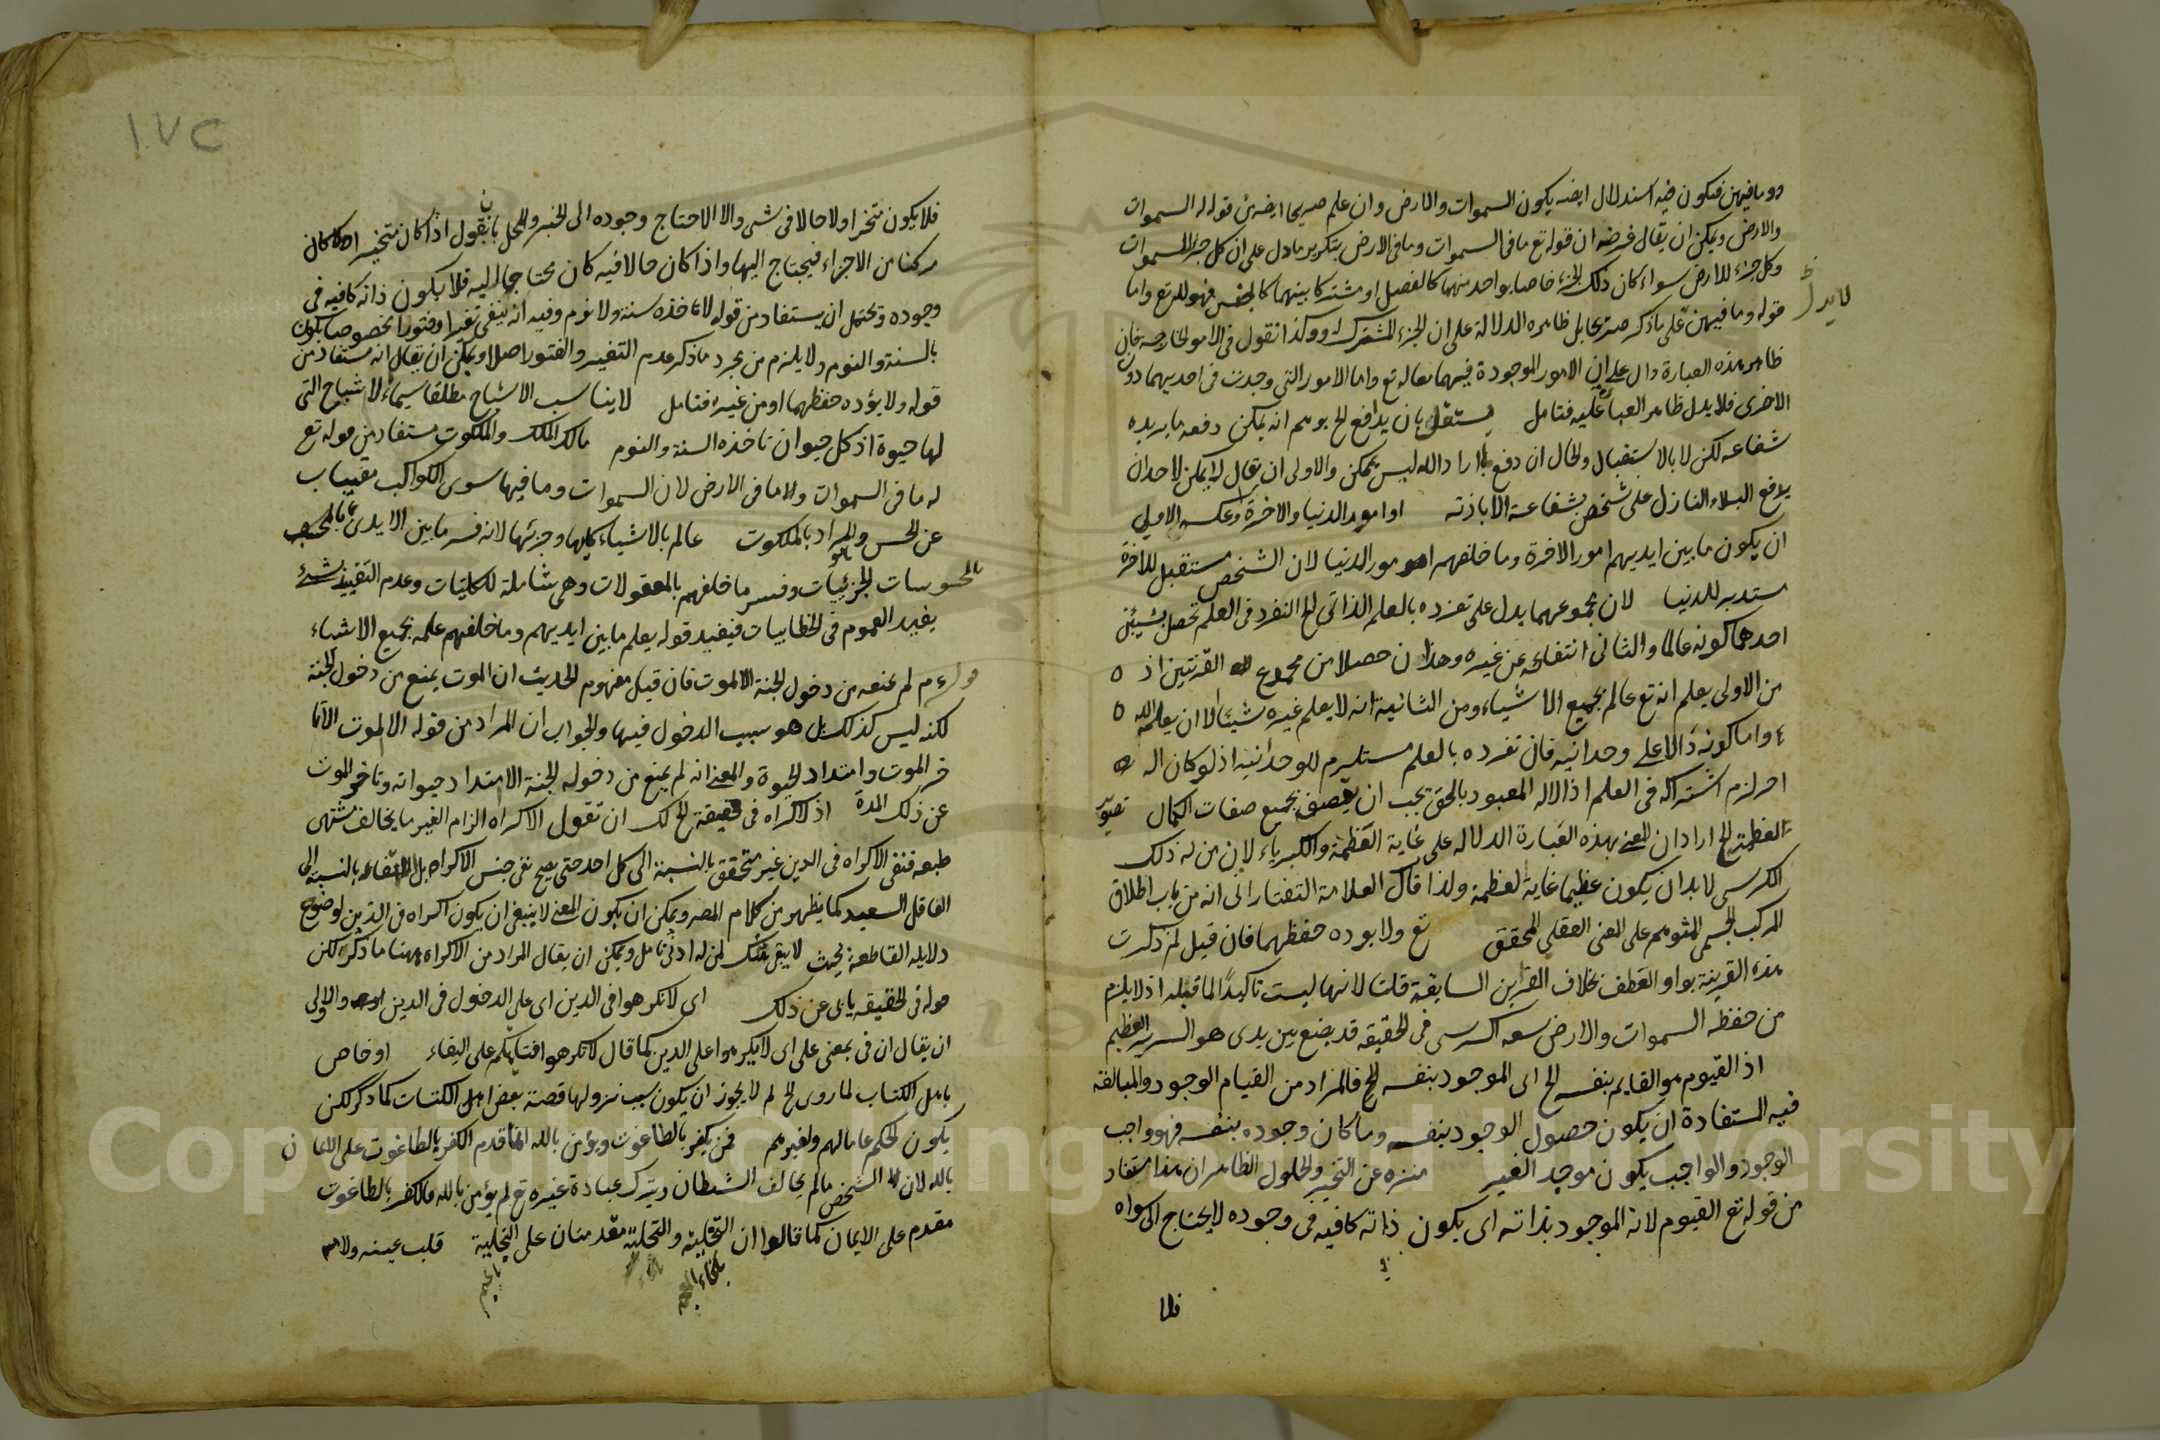 وما فيهن فيكون فيه استدلال ايضه يكون السموات والارض وان علم صريحا ايضه من قوله له السموات
والارض ويمكن ان يقال غرضه ان قوله تع ما فى السموات وما فى الارض بتكرير ما دل على ان كل جزء للسموات
وكل جزء للارض سواء كان ذلك الجزء خاصا بواحد منهما كالفصل او مشتركا بينهما كالجنس فهو لله تع واما
قوله وما فيهن على ما ذكر صريحا بل ظاهره الدلالة على ان الجزء المشترك له وكذا نقول فى الامور الخارجة فان
ظاهر هذه العبارة دال على ان الامور الموجودة فيهما معا له تع واما الامور التى وجدت فى احديهما دون
الاخرى فلا يدل ظاهر العبارة عليه فتامل يستقل بان يدافع الخ يوهم انه يمكن دفعه ما يريده
شفاعة لكن لا بالاستقبال والحال ان دفع ما اراد الله ليس بممكن والاولى ان يقال لا يمكن لاحد ان
يدفع البلاء النازل على شخص بشفاعة الا باذنه او امور الدنيا والاخرة وعكسه الاولى
ان يكون ما بين ايديهم امور الاخرة وما خلفهم امور الدنيا لان الشخص مستقبل للاخرة
مستدبر للدنيا لان مجموعهما يدل على تفرده بالعلم الذاتى الخ التفرد فى العلم تحصل بشيئين
احدهما كونه عالما والثانى انتفائه عن غيره وهذان حصلا من مجموع القرنتين اذ
من الاولى يعلم انه تع عالم بجميع الاشياء ومن الثانية انه لا يعلم غيره شيئا الا ان يعلمه الله
واما كونه دالا على وحدانيه فان تفرده بالعلم مستلزم للوحدانية اذ لو كان اله
اخر لزم اشتراكه فى العلم اذ الاله المعبود بالحق يجب ان يتصف بجميع صفات الكمال تصوير
لعظمته الخ اراد ان المعنى بهذه العبارة الدلالة على غاية العظمة والكبرياء لان من له ذلك
الكرسى لا بد ان يكون عظيما غاية العظمة ولذا قال العلامة التفتازانى انه من باب اطلاق
المركب الحسى المتوهم على المعنى العقلى المحقق تع ولا يوده حفظهما فان قيل لم ذكرت
هذه القرينة بواو العطف بخلاف القراين السابقة قلت لانها ليست تاكيدا لما قبلها اذ لا يلزم
من حفظه السموات والارض سعه كرسى فى الحقيقة قد يضع بين يدى هو السرير العظيم
اذ القيوم هو القايم بنفسه الخ اى الموجود بنفسه الخ فالمراد من القيام الوجود والمبالغة
فيه المستفادة ان يكون حصول الوجود بنفسه وما كان وجوده بنفسه فهو واجب
الوجود والواجب يكون موجد الغير منزه عن التحيز والحلول الظاهر ان هذا مستفاد
من قوله تع القيوم لانه الموجود بذاته اى يكون ذاته كافية فى وجوده لا يحتاج الى سواه
فلا
١٧٢
فلا يكون متحيزا ولا حالا فى شى والا لاحتاج وجوده الى الحيز والمحل بان نقول اذا كان متحيزا كان
مركبا من الاجزاء فيحتاج اليها واذا كان حالا فيه كان محتاجا اليه فلا يكون ذاته كافية فى
وجوده ويحتمل ان يستفاد من قوله لا تاخذه سنة ولا نوم وفيه انه ينفى تغيرا وفتورا مخصوصا يكون
بالسنة والنوم ولا يلزم من مجرد ما ذكر عدم التغير والفتور اصلا ويمكن ان يقال انه مستفاد من
قوله ولا يؤده حفظهما او من غيره فتامل لا يناسب الاشباح مطلقا سيما الاشباح التى
لها حيوة اذ كل حيوان تاخذه السنة والنوم مالك الملك والملكوت مستفاد من قوله تع
له ما فى السموات وما فى الارض لان السموات وما فيها سوى الكواكب مغيبات
عن الحس والمراد بالملكوت عالم بالاشياء كليها وجزئيها لانه فسر ما بين الايدى
بالمحسوسات الجزئيات وفسر ما خلفهم بالمعقولات وهى شاملة للكليات وعدم التقييد بشئ
يفيد العموم فى الخطابيات فيفيد قوله يعلم ما بين ايديهم وما خلفهم علمه بجميع الاشياء
قوله ع م لم يمنعه من دخول الجنة الا الموت فان قيل مفهوم الحديث ان الموت يمنع من دخول الجنة
لكنه ليس كذلك بل هو سبب الدخول فيها والجواب ان المراد من قوله الا الموت الا تا
خر الموت وامتداد الحيوة والمعنى انه لم يمنع من دخوله الجنة الا امتداد حيوته وتاخر الموت
عن ذلك المدة اذ لاكراه فى الحقيقة الخ لك ان تقول الاكراه الزام الغير ما يخالف مشتهى
طبعه فنفى الاكراه فى الدين غير متحقق بالنسبة الى كل احد حتى يصح نفى جنس الاكراه بل انتفاءه بالنسبة الى
العاقل السعيد كما يظهر من كلام المصه ويمكن ان يكون المعنى لا ينبغى ان يكون اكراه فى الدين لوضوح
دلايله القاطعة بحيث لا يبقى شك لمن له ادنى تامل ويمكن ان يقال المراد من الاكراه ههنا ما ذكره لكن
قوله فى الحقيقة يابى عن ذلك اى لا تكرهوا فى الدين اى على الدخول فى الدين والاولى
ان يقال ان فى بمعنى على اى لا تكرهوا على الدين كما قال لا تكرهوا فتياتكم على البغاء او خاص
باهل الكتاب لما روى الخ لم لا يجوز ان يكون سبب نزولها قصة بعض اهل الكتاب كما ذكر لكن
يكون الحكم عاما لهم ولغيرهم فمن يكفر بالطاغوت ويؤمن بالله انما قدم الكفر بالطاغوت على الايمان
بالله لان الشخص ما لم يخالف الشيطان ويترك عبادة غيره تع لم يؤمن بالله فالكفر بالطاغوت
مقدم على الايمان كما قالوا ان التخلية والتحلية مقدمتان على التجلية قلب عينه ولامه
بالخاء المعجمة
بالجيم
Copyright © King Saud University